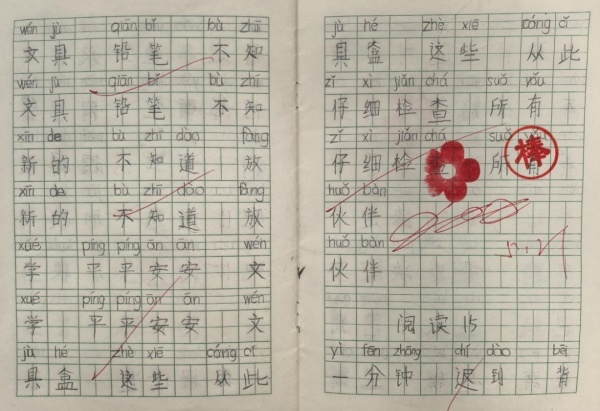 wén jù qiān bǐ bù zhī
文具 铅笔 不知
wén jù qiān bǐ bù zhī
文具 铅笔 不知
xīn de bù zhī dào fàng
新的 不知道 放
xīn de bù zhī dào fàng
新的 不知道 放
xué píng píng ān ān wén
学 平平安安 文
xué píng píng ān ān wén
学 平平安安 文
jù hé zhè xiē cóng cǐ
具盒 这些 从此
jù hé zhè xiē cóng cǐ
具盒 这些 从此
zǐ xì jiǎn chá suǒ yǒu
仔细检查 所有
zǐ xì jiǎn chá suǒ yǒu
仔细检查 所有
棒
huǒ bàn
伙伴
huǒ bàn
伙伴
阅读15
yì fēn zhōng chí dào bēi
一分钟 迟到 背